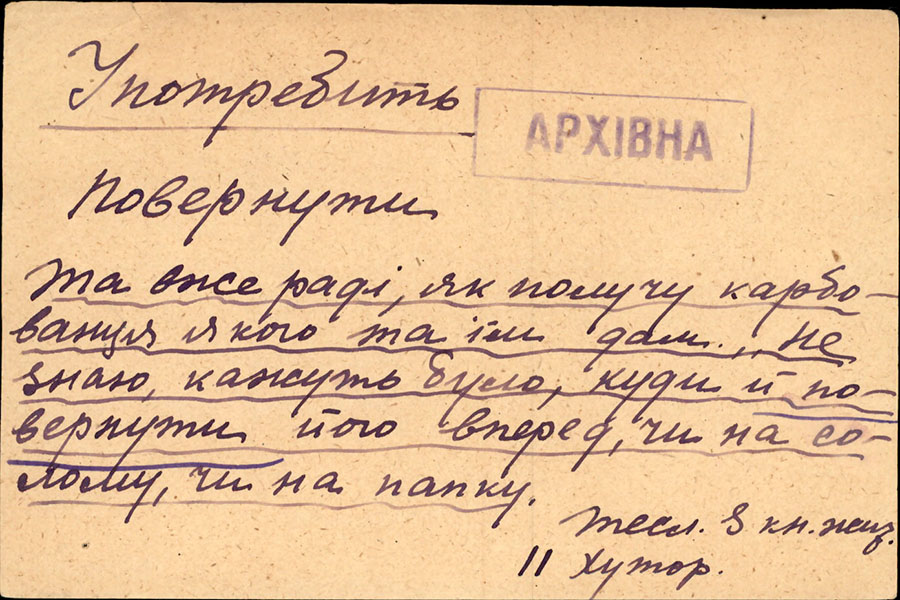 Употребить
АРХІВНА
Повернути
та вже раді, як получу карбо-
ванця якого та їм дам... „Не
знаю, кажуть було, куди й по-
вернути його вперед, чи на со-
лому, чи на папку.
Тесл. З кн. жит.
11 Хутор.